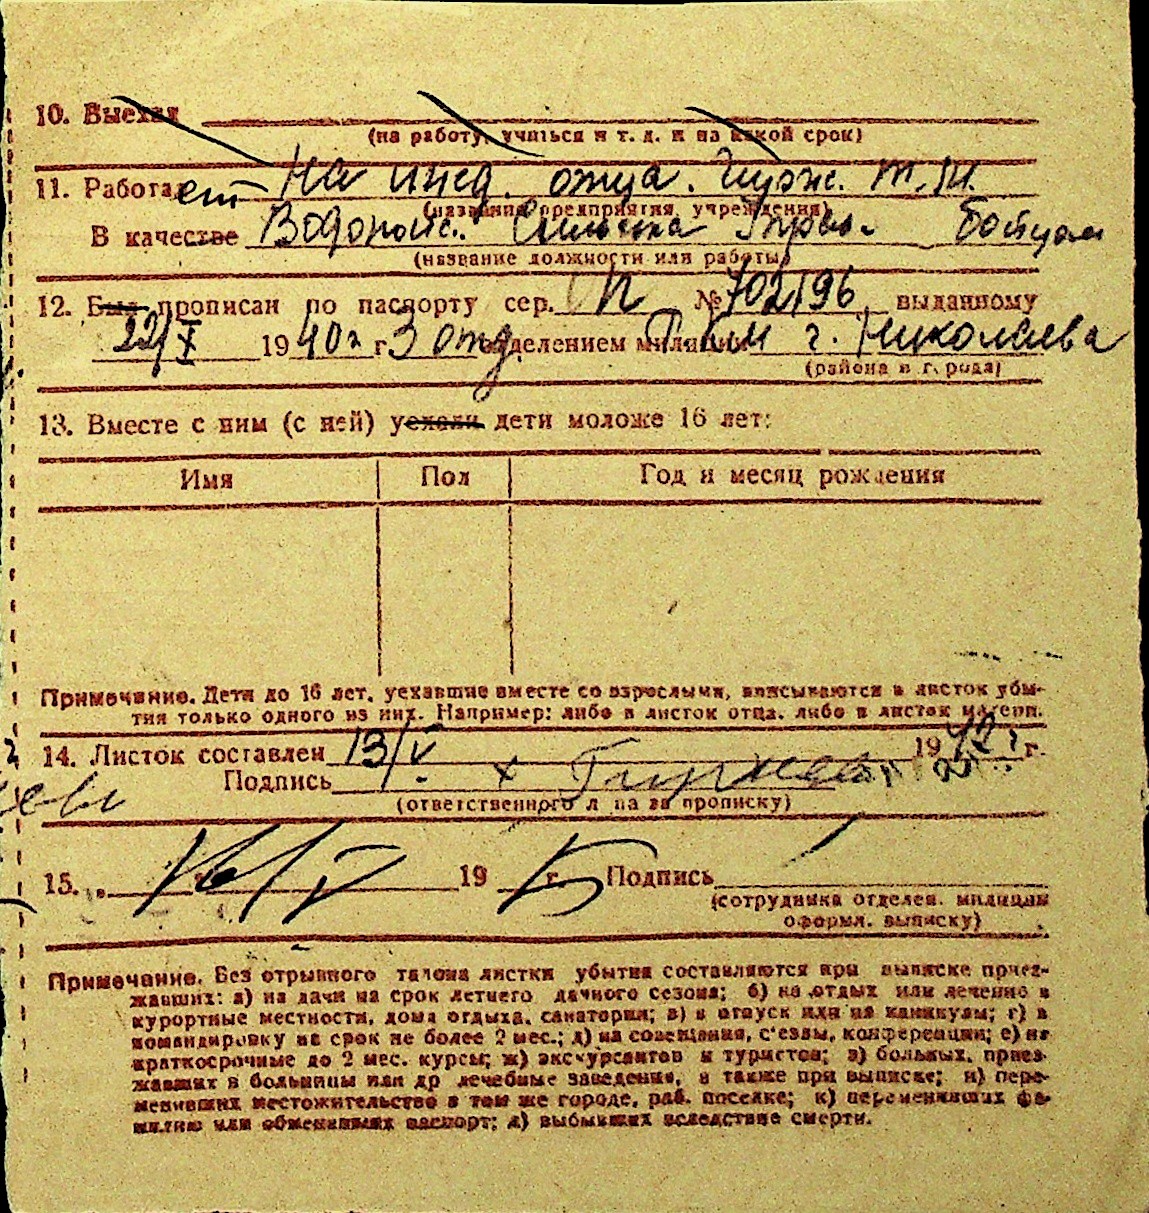 10. Выехал
(на работу, учиться и т. д. и на какой срок)
11. Работает На ижд. отца.
(название предприятия, учреждения)
В качестве
(название должности или работы)
12. Был прописан по паспорту сер. № 702196 выданному
22/X 1940 г. 3 отд отделением милиции г. Николаева
(района и города)
13. Вместе с ним (с ней) уехали дети моложе 16 лет:
Имя Пол Год и месяц рождения
Примечание. Дети до 16 лет, уехавшие вместе со взрослыми, вписываются в листок убы-
тия только одного из них. Например: либо в листок отца, либо в листок матери.
14. Листок составлен 13/V 1942 г.
Подпись
(ответственного лица за прописку)
15. „ 16/V 19 г. Подпись
(сотрудника отделен. милиции
оформл. выписку)
Примечание. Без отрывного талона листки убытия составляются при выписке приез-
жавших: а) на дачи на срок летнего дачного сезона; б) на отдых или лечение в
курортные местности, дома отдыха, санатории; в) в отпуск или на каникулы; г) в
командировку на срок не более 2 мес.; д) на совещания, с'езды, конференции; е) на
краткосрочные до 2 мес. курсы; ж) экскурсантов и туристов; з) больных, приез-
жавших в больницы или др лечебные заведения, а также при выписке; и) пере-
менивших местожительство в том же городе, раб. поселке; к) переменивших фа-
милию или обменявших паспорт; л) выбывших вследствие смерти.